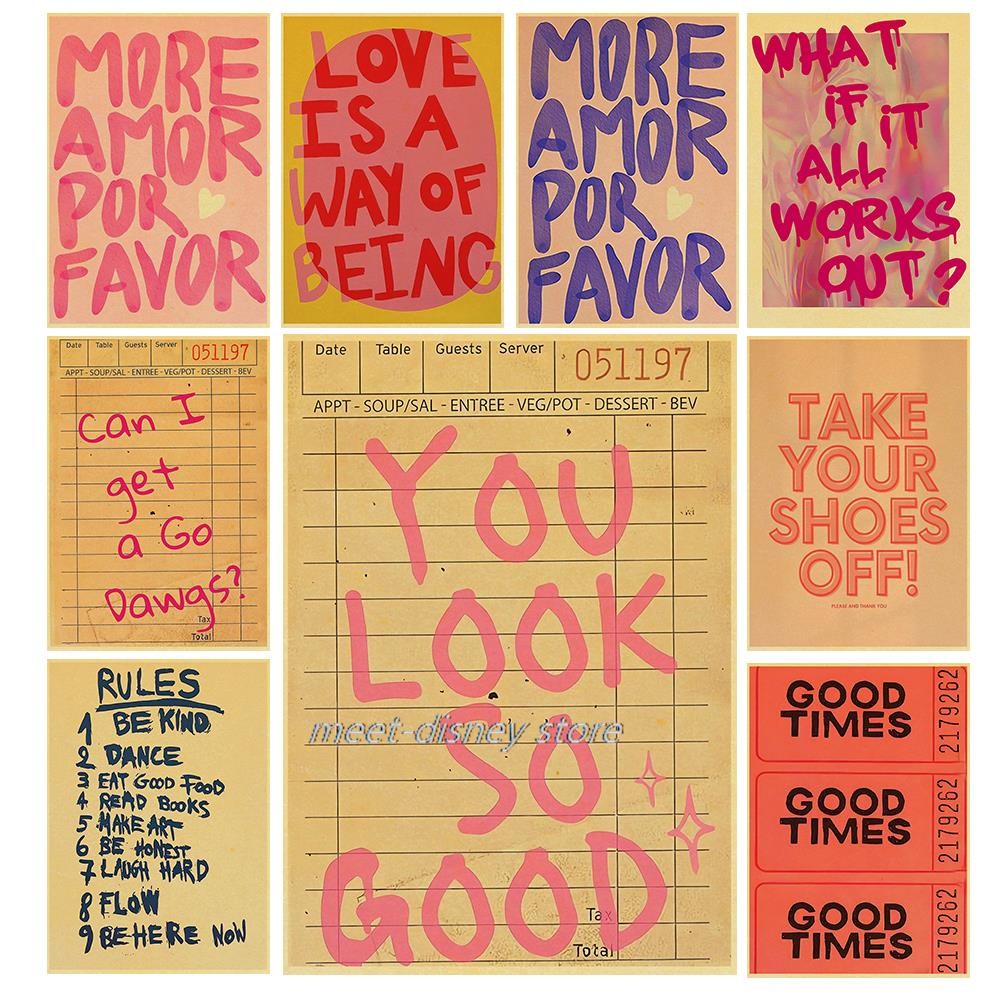 MORE
AMOR
POR
FAVOR
LOVE
IS A
WAY OF
BEING
MORE
AMOR
POR
FAVOR
WHAT
iF iT
ALL
WORKS
OUT?
Date Table Guests Server 051197
APPT - SOUP/SAL - ENTREE - VEG/POT - DESSERT - BEV
Can I
get
a Go
Dawgs?
Tax
Total
Date Table Guests Server 051197
APPT - SOUP/SAL - ENTREE - VEG/POT - DESSERT - BEV
YOU
LOOK
SO
meet-disney store
GOOD
Tax
Total
TAKE
YOUR
SHOES
OFF!
PLEASE AND THANK YOU
RULES
1 BE KIND
2 DANCE
3 EAT GOOD FOOD
4 READ BOOKS
5 MAKE ART
6 BE HONEST
7 LAUGH HARD
8 FLOW
9 BE HERE NOW
GOOD
TIMES
2179262
GOOD
TIMES
2179262
GOOD
TIMES
2179262